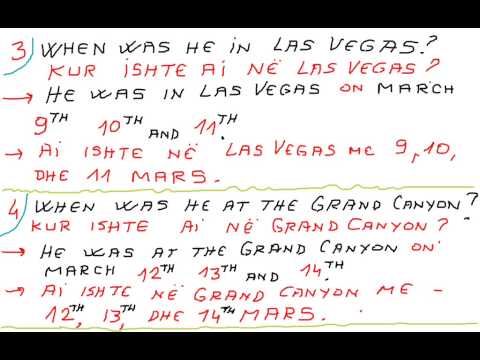 3 WHEN WAS HE IN LAS VEGAS?
KUR ISHTE AI NË LAS VEGAS?
→ HE WAS IN LAS VEGAS ON MARCH
9TH 10TH AND 11TH.
→ AI ISHTE NË LAS VEGAS ME 9, 10,
DHE 11 MARS.
4 WHEN WAS HE AT THE GRAND CANYON?
KUR ISHTE AI NË GRAND CANYON?
→ HE WAS AT THE GRAND CANYON ON
MARCH 12TH 13TH AND 14TH.
→ AI ISHTE NË GRAND CANYON ME -
12TH, 13TH, DHE 14TH MARS.